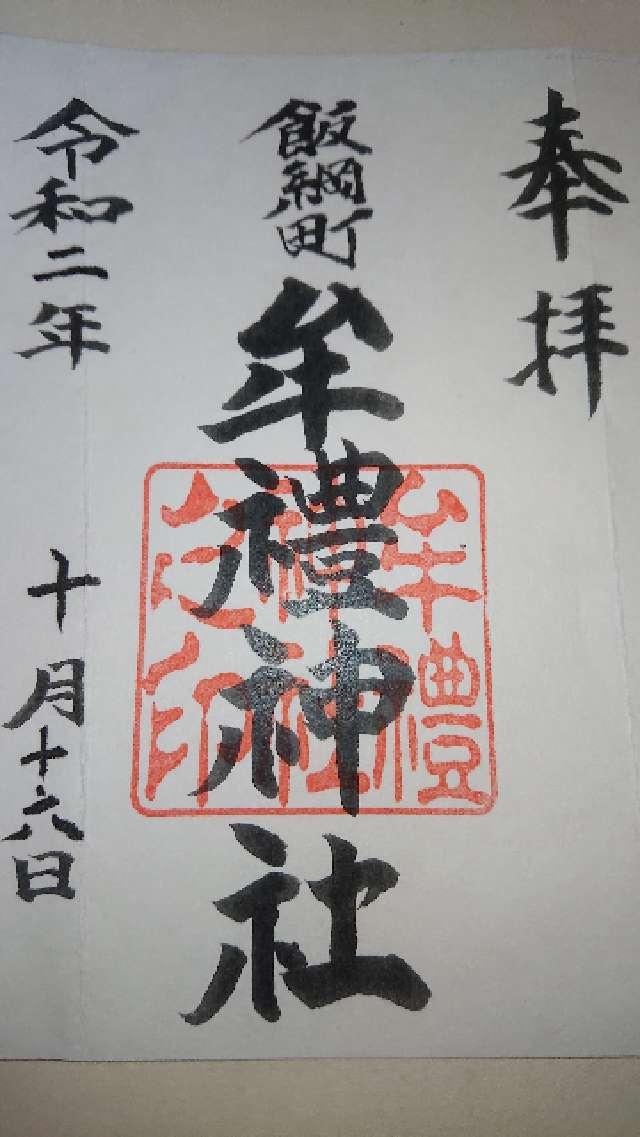 奉拝
飯綱町
牟禮神社
牟禮
神社
之印
令和二年
十月十六日